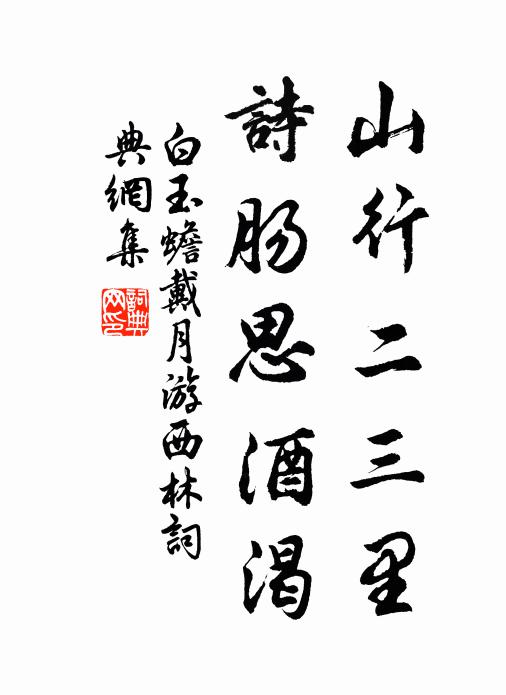 山行二三里
詩肠思酒渴
白玉蟾戴月游西林詞
典網集
詞典
网印